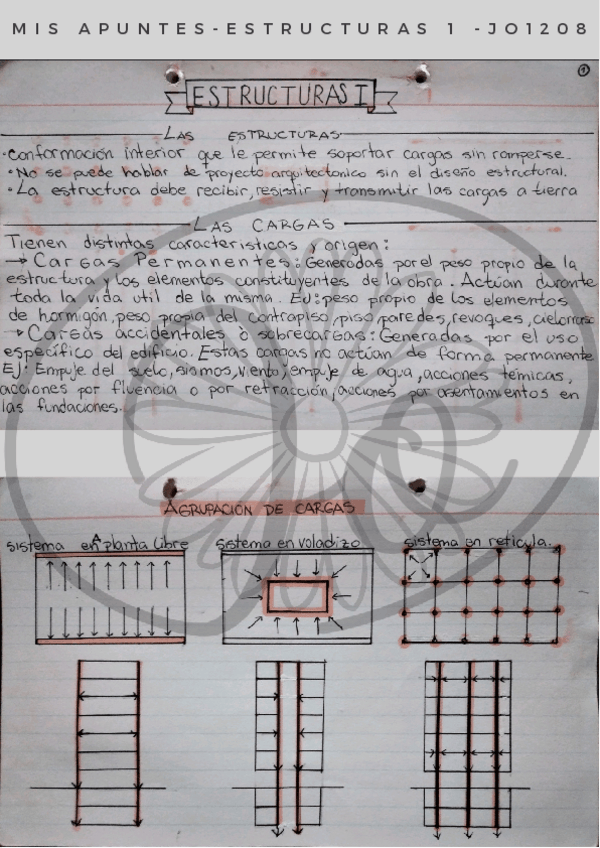 MIS APUNTES-ESTRUCTURAS 1 -JO1208
1
ESTRUCTURAS I
LAS ESTRUCTURAS
·Conformación interior que le permite soportar cargas sin romperse.
·No se puede hablar de proyecto arquitectonico sin el diseño estructural.
·La estructura debe recibir, resistir y transmitir las cargas a tierra
LAS CARGAS
Tienen distintas caracteristicas y origen:
→ Cargas Permanentes: Generadas por el peso propio de la
estructura y los elementos constituyentes de la obra. Actúan durante
toda la vida util de la misma. EJ: peso propio de los elementos
de hormigón, peso propia del contrapiso, piso, paredes, revoques, cielorraso
→ Cargas accidentales o sobrecargas: Generadas por el uso
especifico del edificio. Estas cargas no actúan de forma permanente
EJ: Empuje del suelo, sismos, viento, empuje de agua, acciones térmicas,
acciones por fluencia o por retracción, acciones por asentamientos en
las fundaciones.
AGRUPACIÓN DE CARGAS
sistema en planta libre
Sistema en voladizo
sistema en reticula.